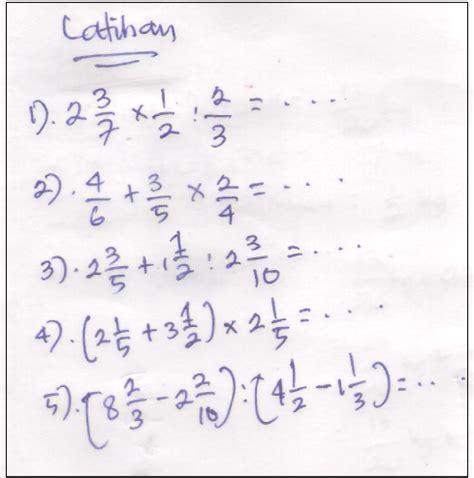 Latihan
1). 2 3/7 × 1/2 : 2/3 = ....
2). 4/6 + 3/5 × 2/4 = ....
3). 2 3/5 + 1 1/2 : 2 3/10 = ....
4). (2 1/5 + 3 1/2) × 2 1/5 = ....
5). (8 2/3 - 2 2/10) : (4 1/2 - 1 1/3) = ....